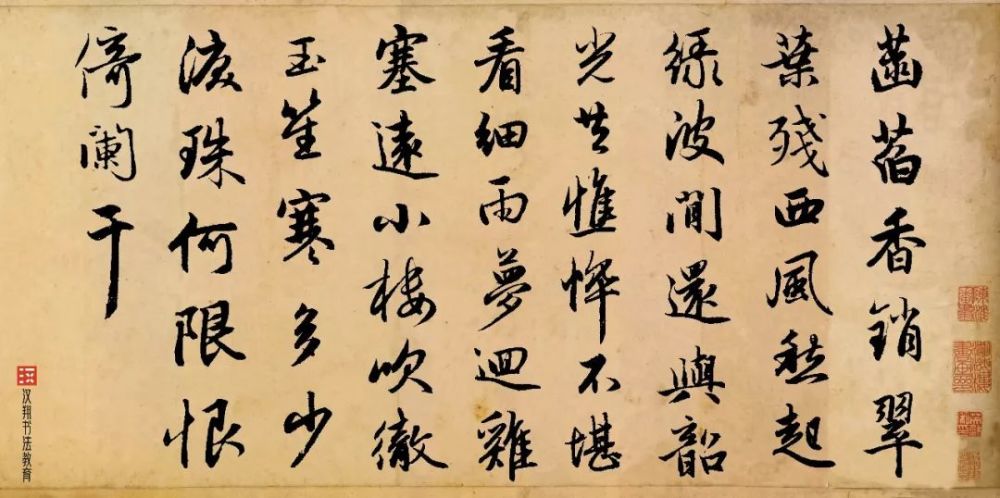 菡萏香銷翠
葉殘西風愁起
綠波間還與韶
光共憔悴不堪
看細雨夢迴雞
塞遠小樓吹徹
玉笙寒多少
淚珠何限恨
倚闌干
汉翔书法教育